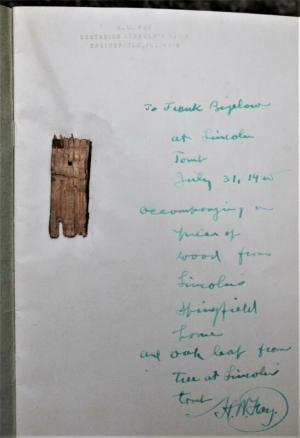 H. W. FAY
CUSTODIAN LINCOLN'S TOMB
SPRINGFIELD, ILLINOIS
To Frank Bigelow
at Lincoln
Tomb
July 31,
accompanying a
piece of
wood from
Lincolns
Springfield
home
and oak leaf from
tree at Lincolns
tomb
H. W. Fay